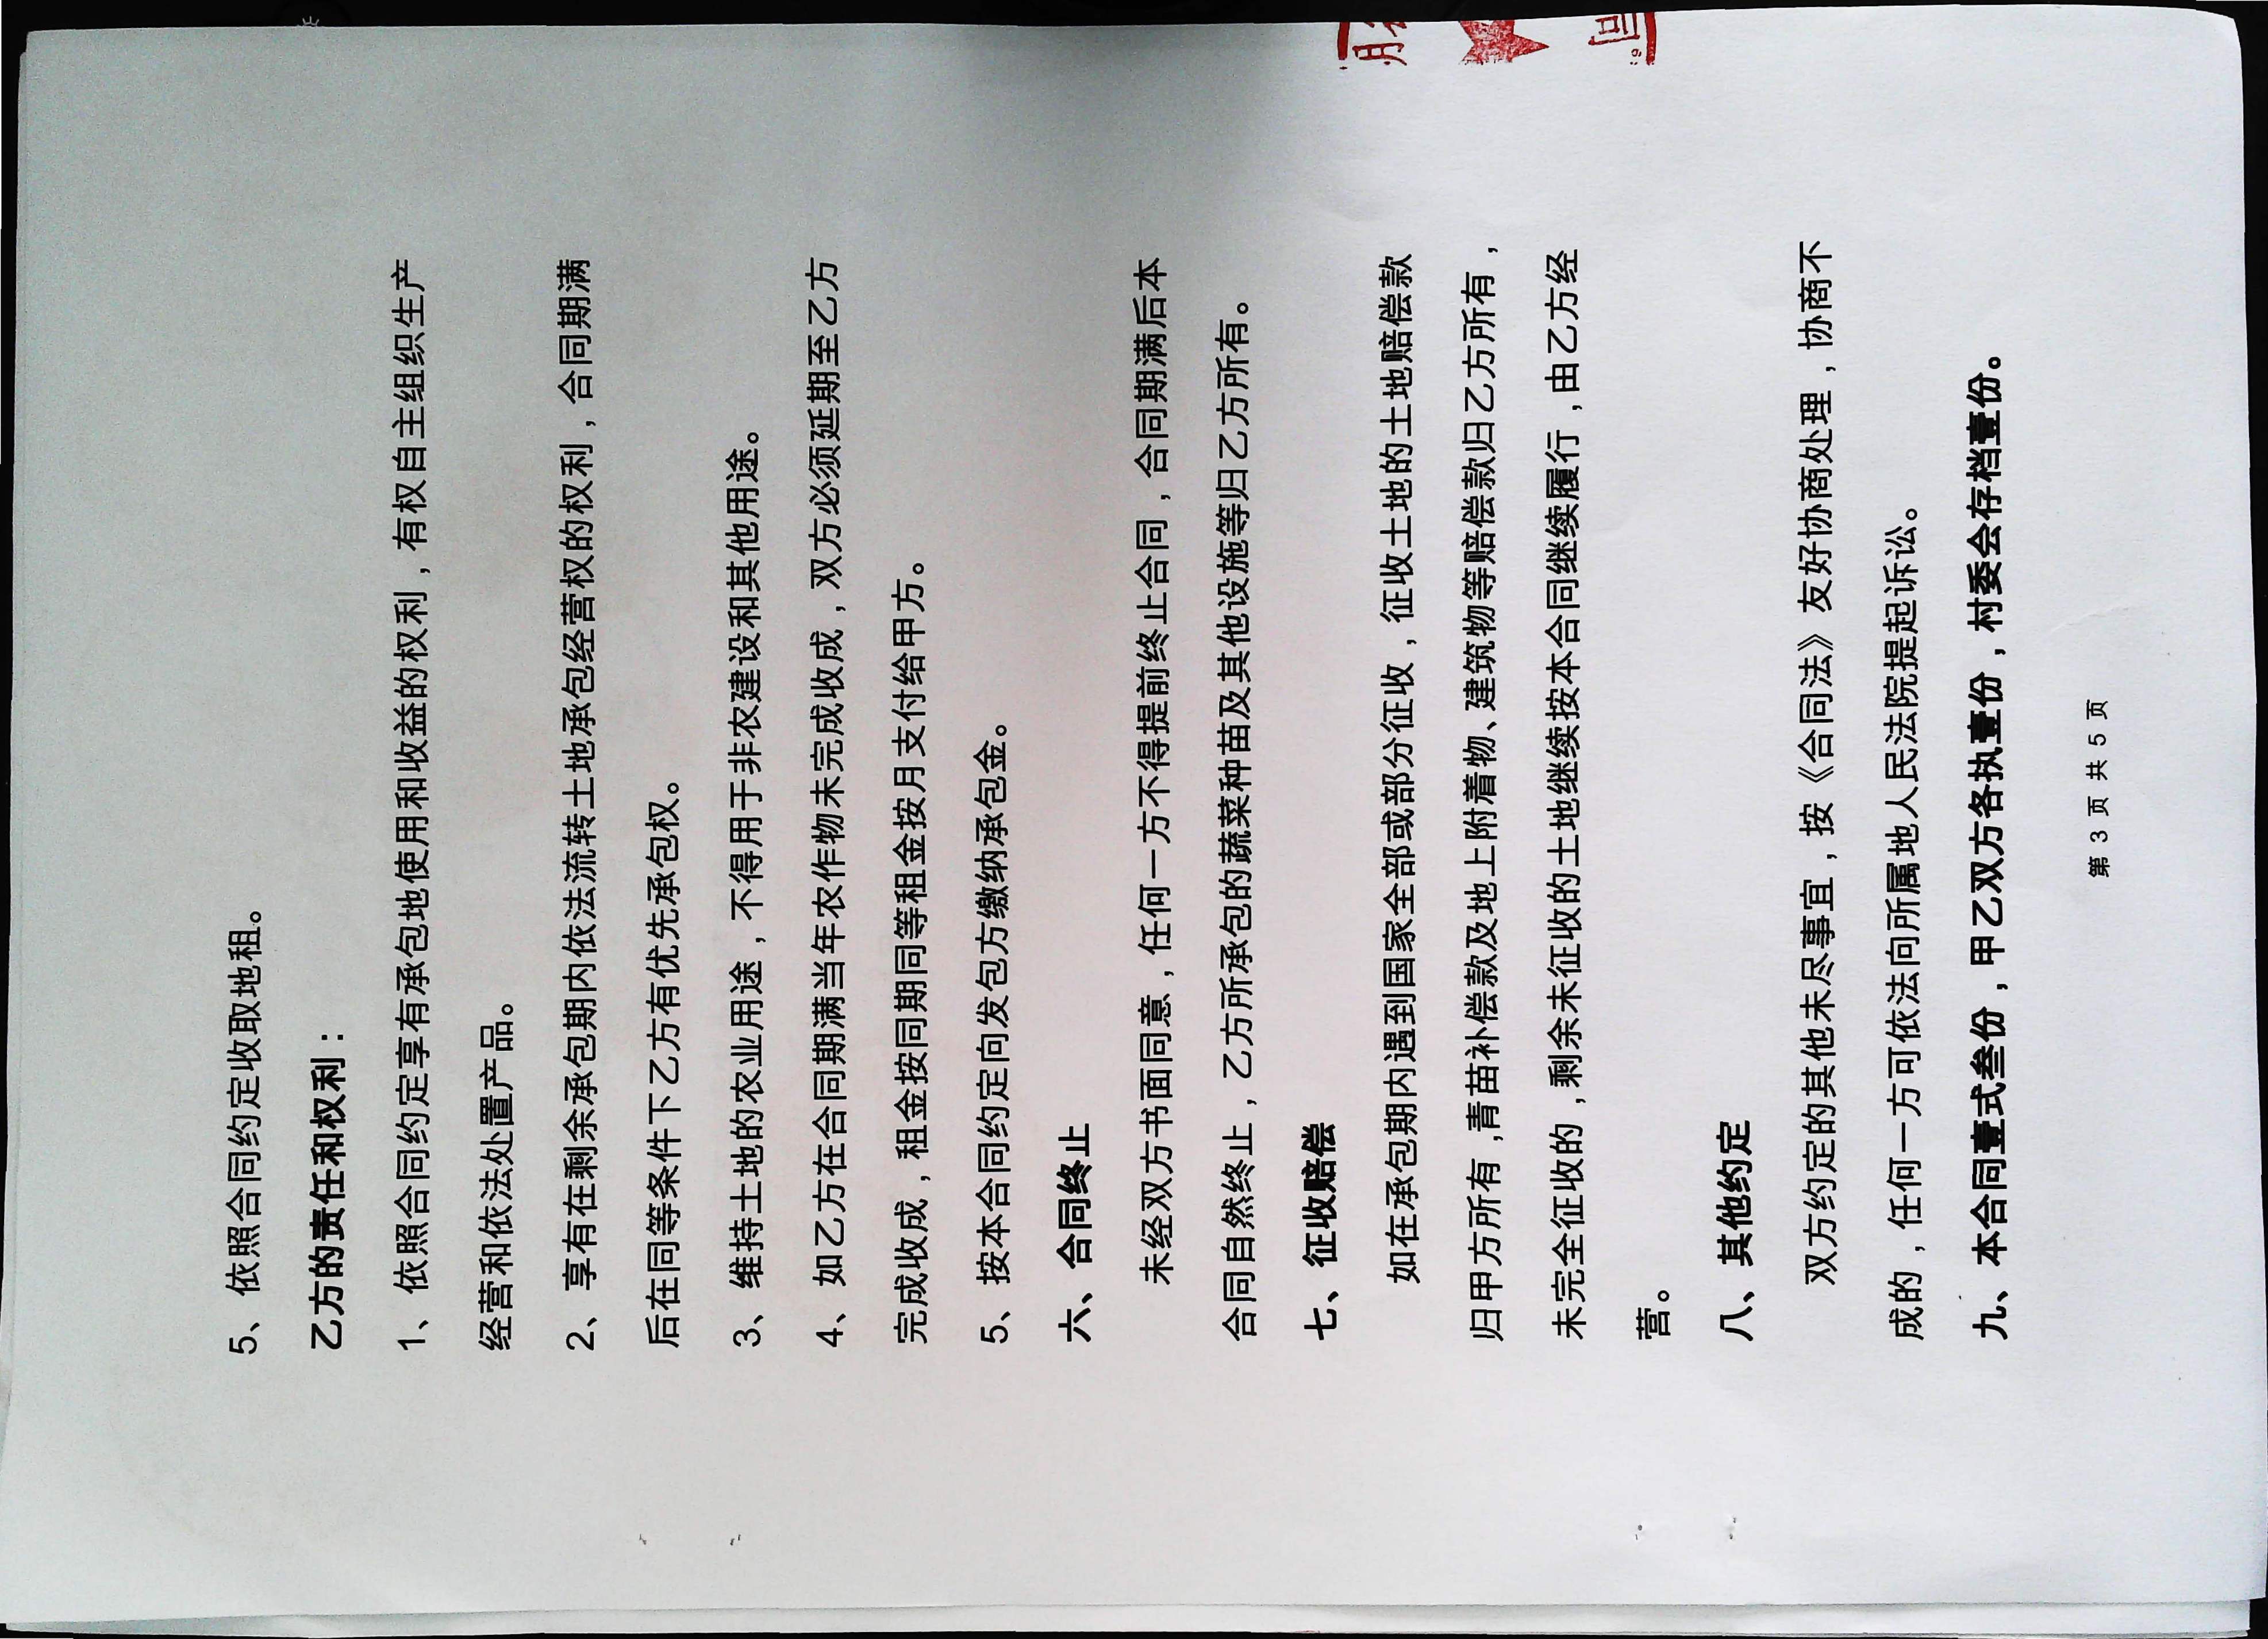 5、依照合同约定收取地租。
乙方的责任和权利：
1、依照合同约定享有承包地使用和收益的权利，有权自主组织生产
经营和依法处置产品。
2、享有在剩余承包期内依法流转土地承包经营权的权利，合同期满
后在同等条件下乙方有优先承包权。
3、维持土地的农业用途，不得用于非农建设和其他用途。
4、如乙方在合同期满当年农作物未完成收成，双方必须延期至乙方
完成收成，租金按同期同等租金按月支付给甲方。
5、按本合同约定向发包方缴纳承包金。
六、合同终止
未经双方书面同意，任何一方不得提前终止合同，合同期满后本
合同自然终止，乙方所承包的蔬菜种苗及其他设施等归乙方所有。
七、征收赔偿
如在承包期内遇到国家全部或部分征收，征收土地的土地赔偿款
归甲方所有，青苗补偿款及地上附着物、建筑物等赔偿款归乙方所有，
未完全征收的，剩余未征收的土地继续按本合同继续履行，由乙方经
营。
八、其他约定
双方约定的其他未尽事宜，按《合同法》友好协商处理，协商不
成的，任何一方可依法向所属地人民法院提起诉讼。
九、本合同壹式叁份，甲乙双方各执壹份，村委会存档壹份。
第 3 页 共 5 页